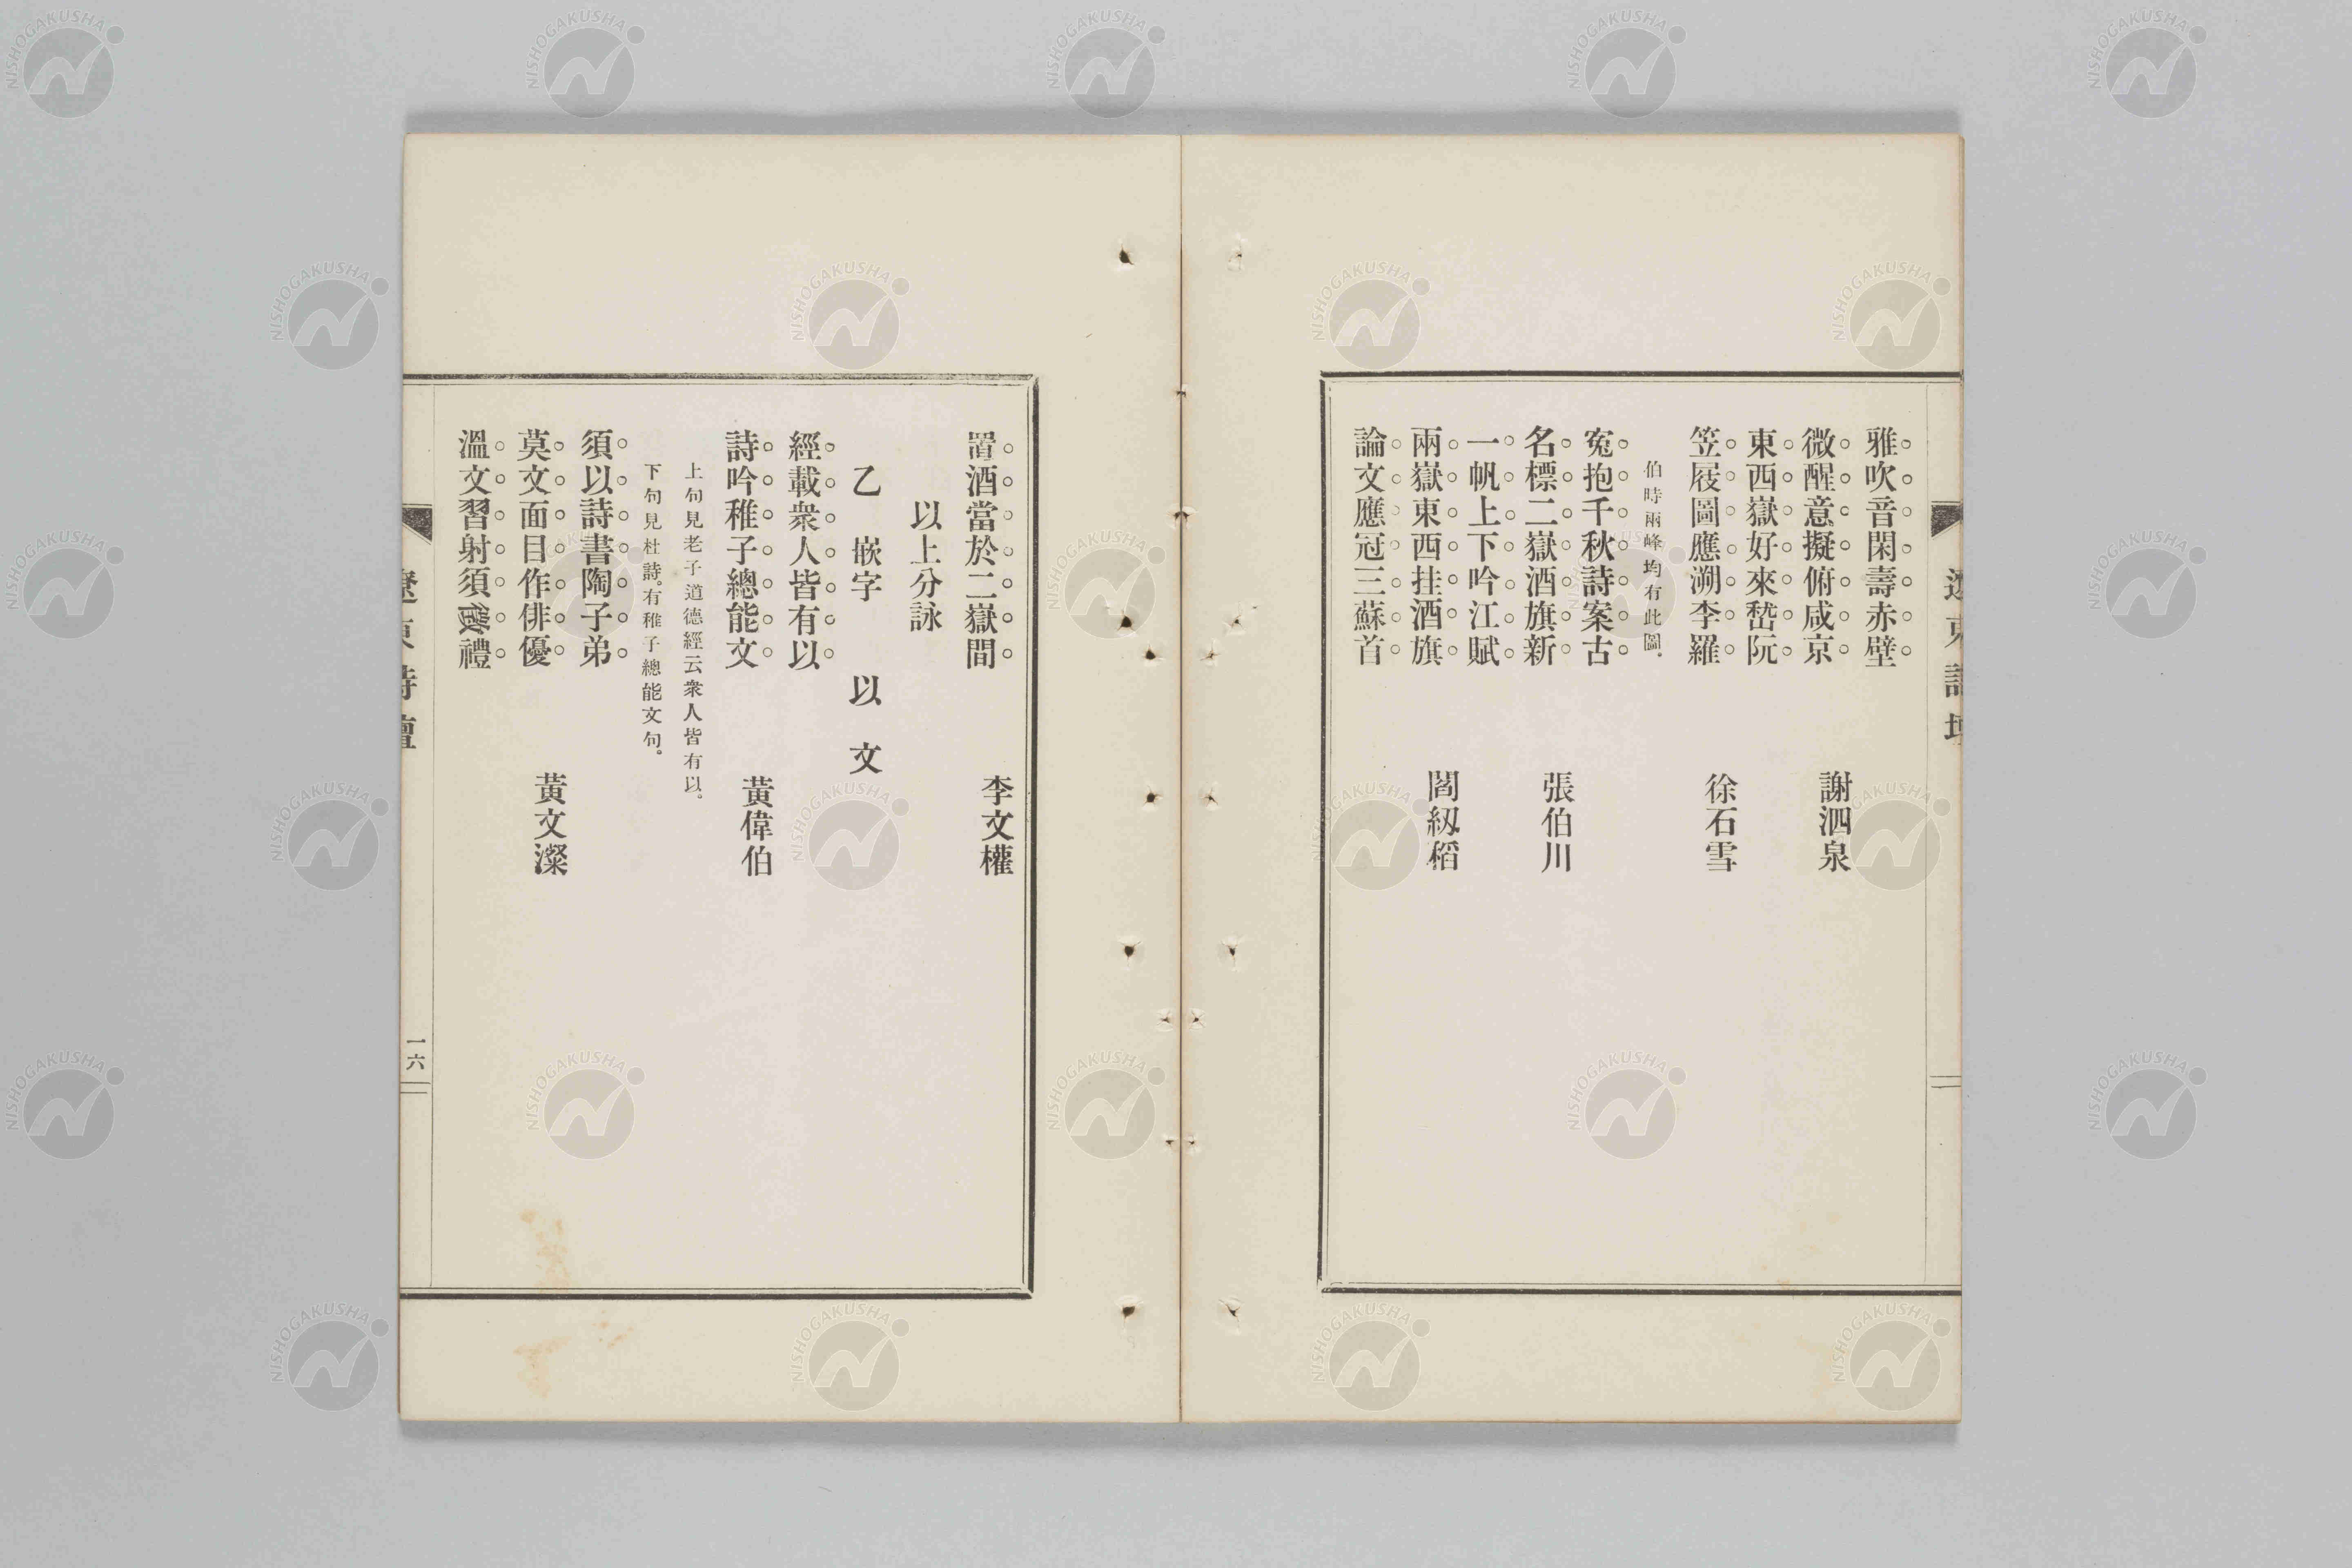 雅吹音閑壽赤壁
微醒意擬俯咸京
謝泗泉
東西嶽好來嵆阮
笠屐圖應溯李羅
徐石雪
伯時兩峰均有此圖.
寃抱千秋詩案古
名標二嶽酒旗新
張伯川
一帆上下吟江賦
兩嶽東西挂酒旗
閻紉稻
論文應冠三蘇首
置酒當於二嶽間
李文權
以上分詠
乙 嵌字 以 文
經載衆人皆有以
詩吟稚子總能文
黃偉伯
上句見老子道德經云衆人皆有以。
下句見杜詩。有稚子總能文句。
須以詩書陶子弟
莫文面目作俳優
黃文澯
溫文習射須徵禮
遼東詩壇
一六
NISHOGAKUSHA